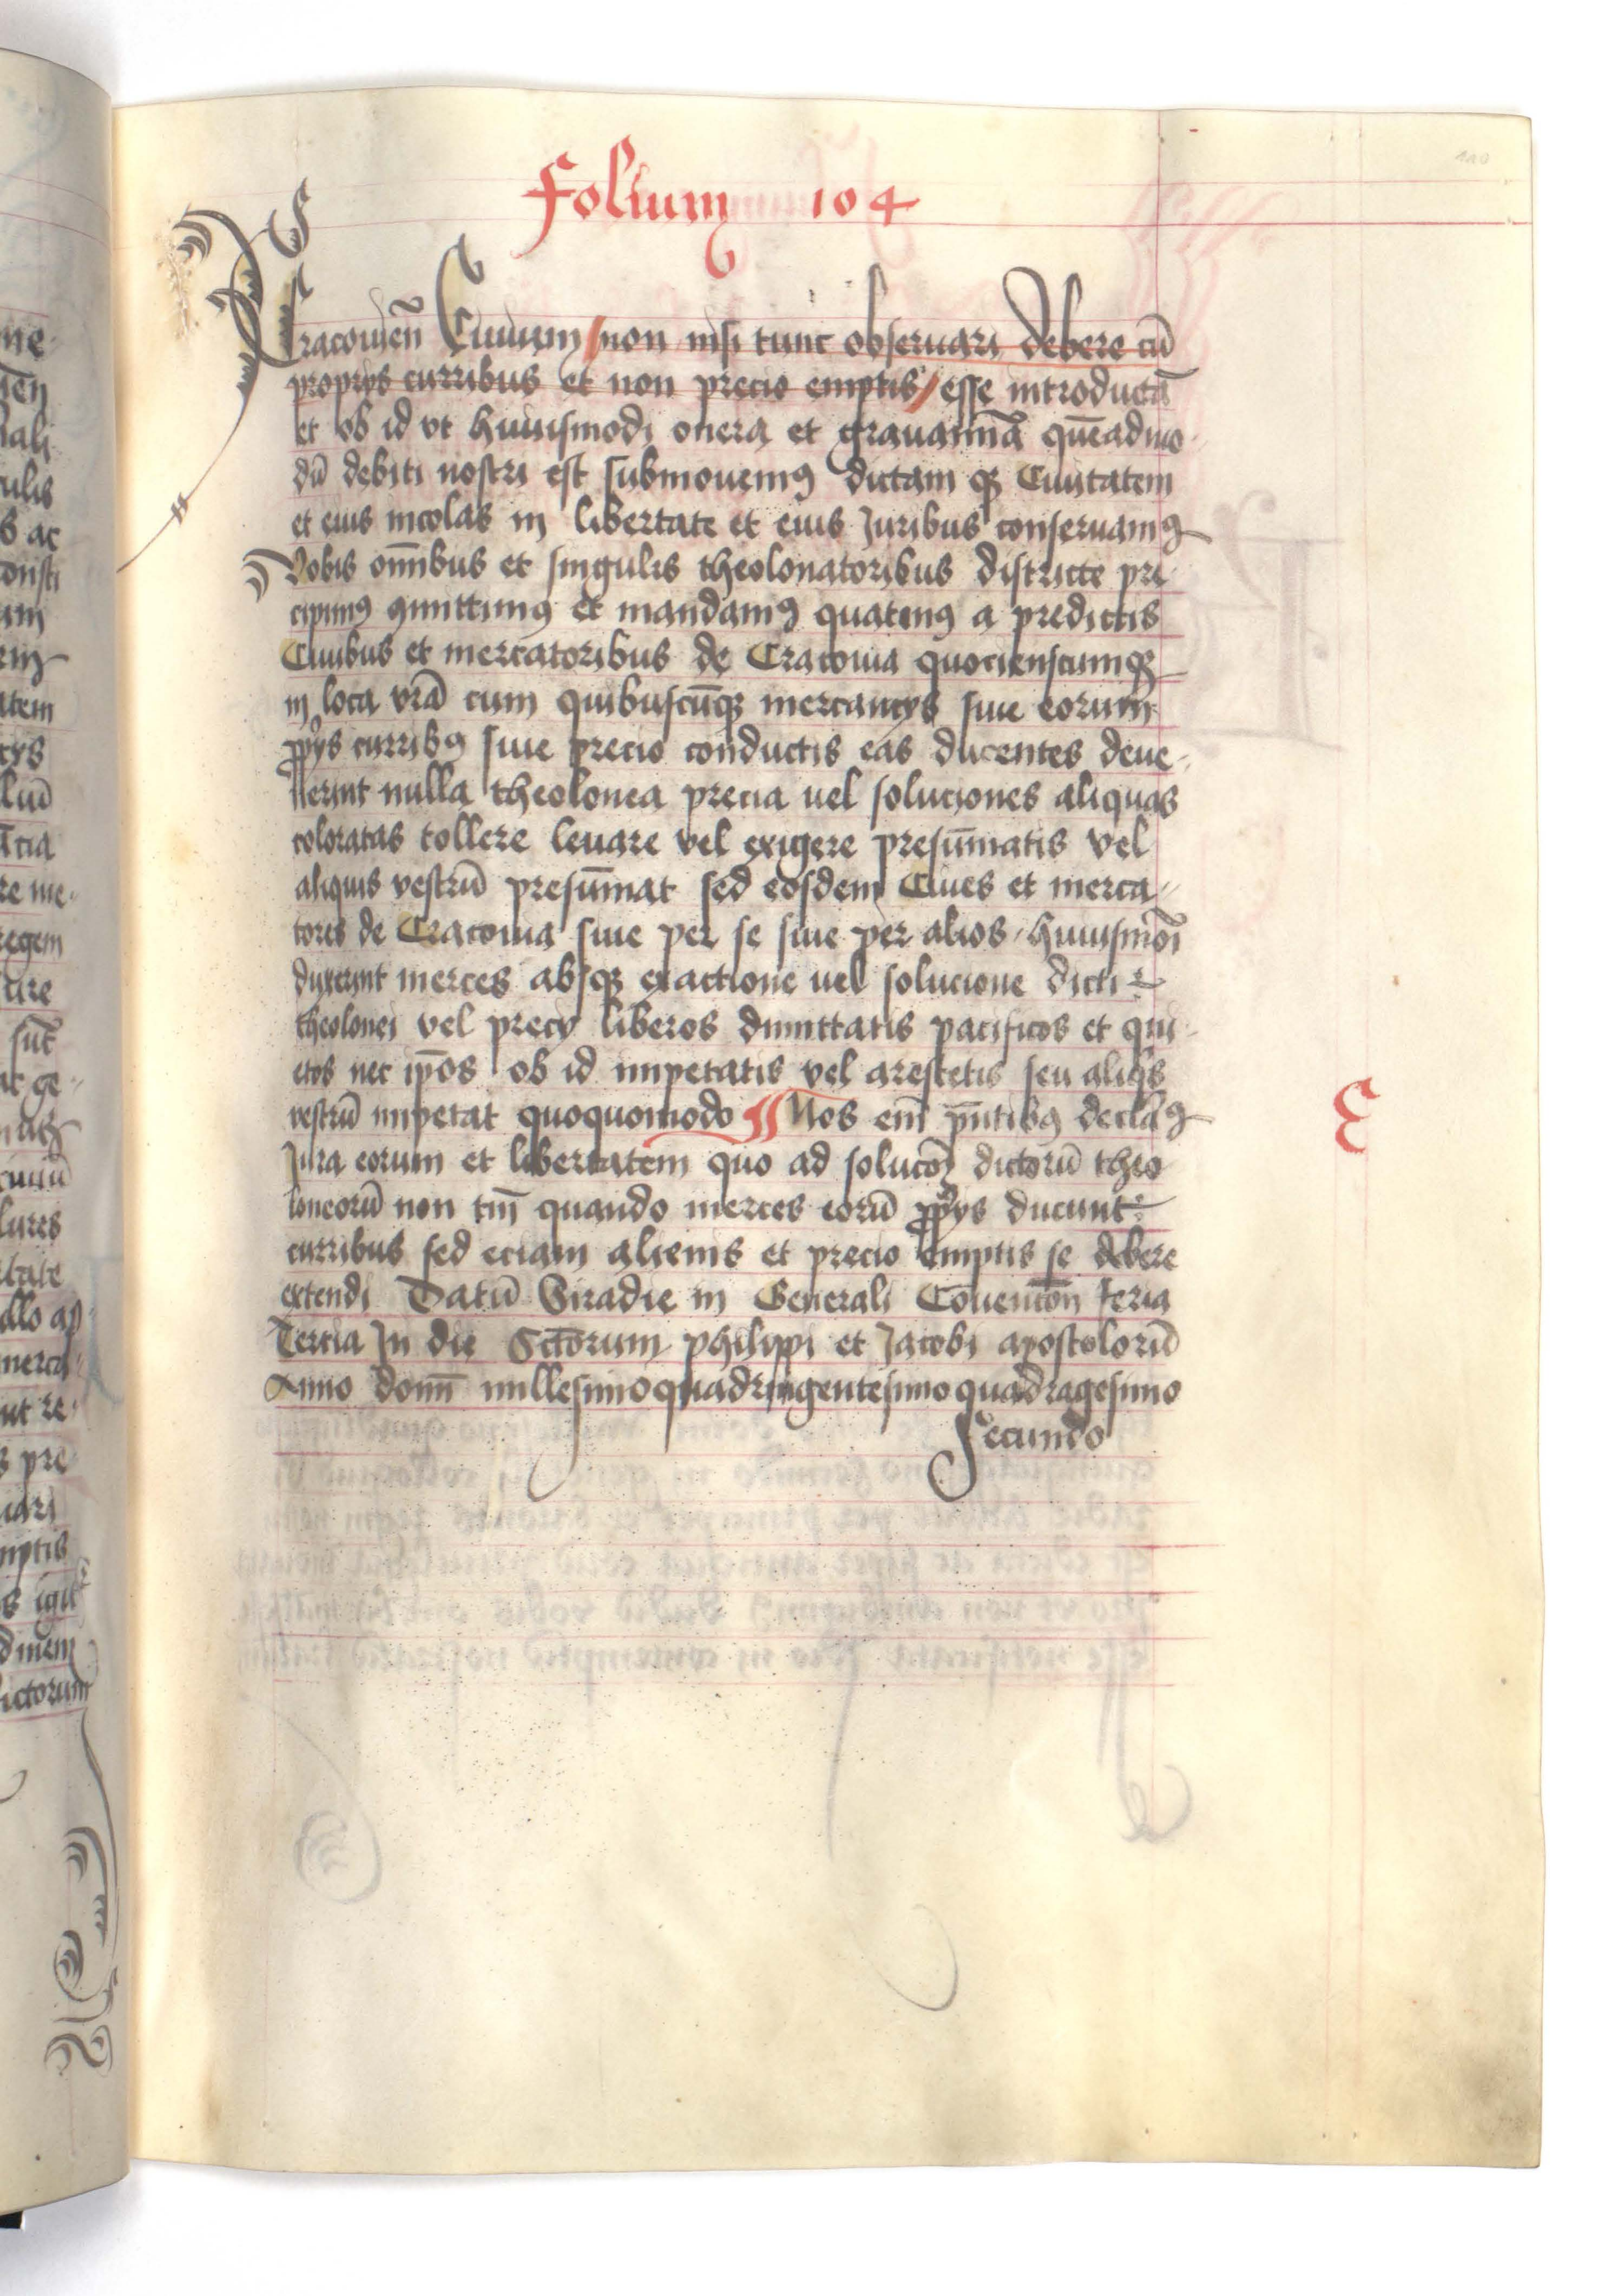 Folium 104
Cracouieñ Ciuium / non nisi tunc obseruari debere cū
proprys curribus et non precio emptis / esse introductā
et ob id vt huiusmodi onera et grauamīa quēadmo-
dū debiti nostri est submouemꝰ dictam qꝫ Ciuitatem
et eius incolas in libertate et eius Juribus conseruamꝰ
Vobis om̄ibus et singulis theolonatoribus districte pre-
cipimꝰ ꝯmittimꝰ et mandamꝰ quatinꝰ a predictis
Ciuibus et mercatoribus de Cracouia quocienscumqꝫ
in loca vrā cum quibuscūqꝫ mercancys siue eorum
ꝓprys curribꝰ siue precio conductis eas ducentes deue-
nerint nulla theolonea precia uel soluciones aliquas
coloratas tollere leuare vel exigere presūmatis vel
aliquis vestrū presūmat sed eosdem Ciues et merca-
tores de Cracouia siue per se siue per alios huiusmōi
duxerint merces absqꝫ exactione uel solucione dicti
theolonei vel precy liberos dimittatis pacificos et qui-
etos nec ip̄os ob id impetatis vel arestetis seu aliqͥs
vestrū impetat quoquomodo ¶ Nos em̄ pn̄tibꝰ declaͣꝰ
Jura eorum et libertatem quo ad solucōꝫ dictorū theo
loneorū non tm̄ quando merces eorū ꝓprys ducunt
curribus sed eciam alienis et precio emptis se debere
extendi Datū Siradie in Generali Cōuencōn feria
Tercia In die Sctōrum philippi et Jacobi apostolorū
Anno domī millesimoquadringentesimo quadragesimo
secundo